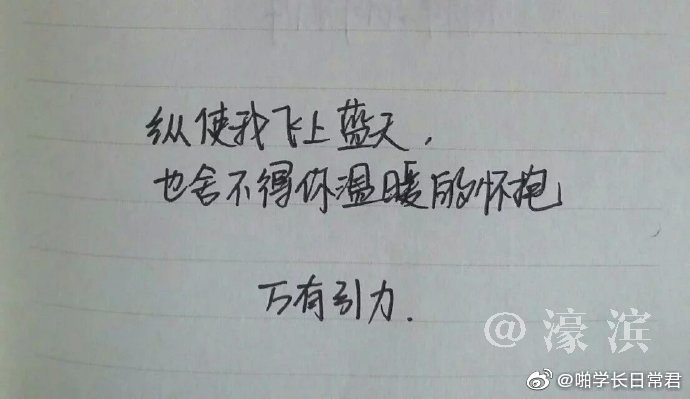 纵使我飞上蓝天，
也舍不得你温暖的怀抱
万有引力.
@濠滨
@啪学长日常君